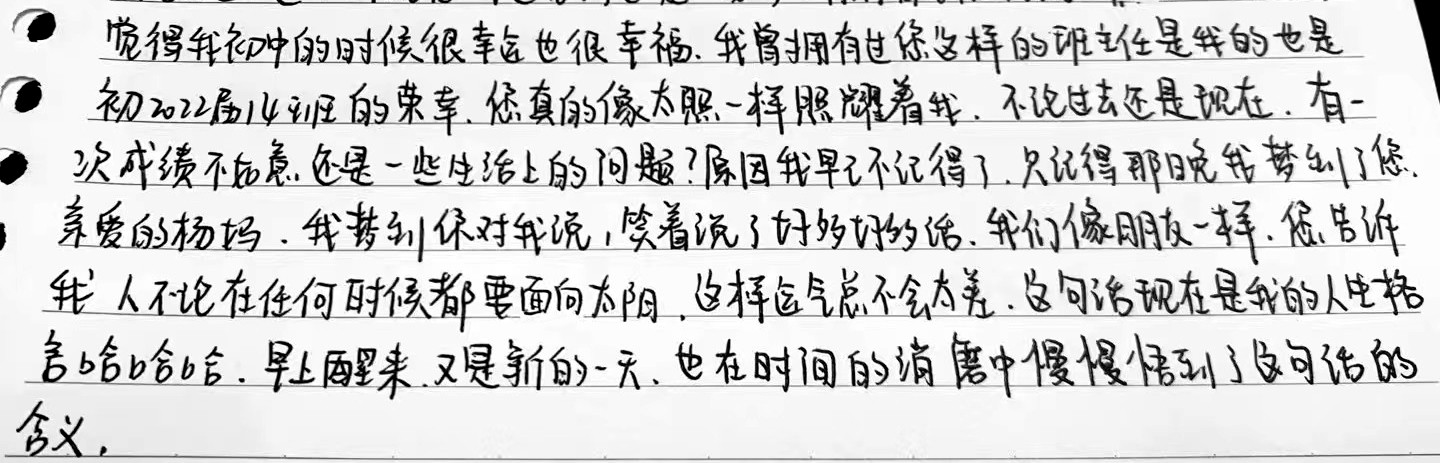 觉得我初中的时候很幸运也很幸福.我曾拥有过您这样的班主任是我的也是
初2022届14班的荣幸.您真的像太照一样照耀着我.不论过去还是现在.有一
次成绩不如意.还是一些生活上的问题?原因我早已不记得了.只记得那日晚我梦到了您.
亲爱的杨妈.我梦到您对我说,笑着说了好多好多话.我们像朋友一样.您告诉
我 人不论在任何时候都要面向太阳.这样运气总不会太差.这句话现在是我的人生格
言哈哈哈.早上醒来.又是新的一天.也在时间的消磨中慢慢悟到了这句话的
含义.